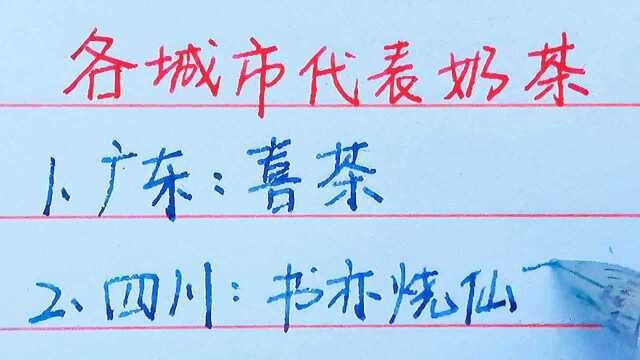 各城市代表奶茶
1、广东：喜茶
2、四川：书亦烧仙